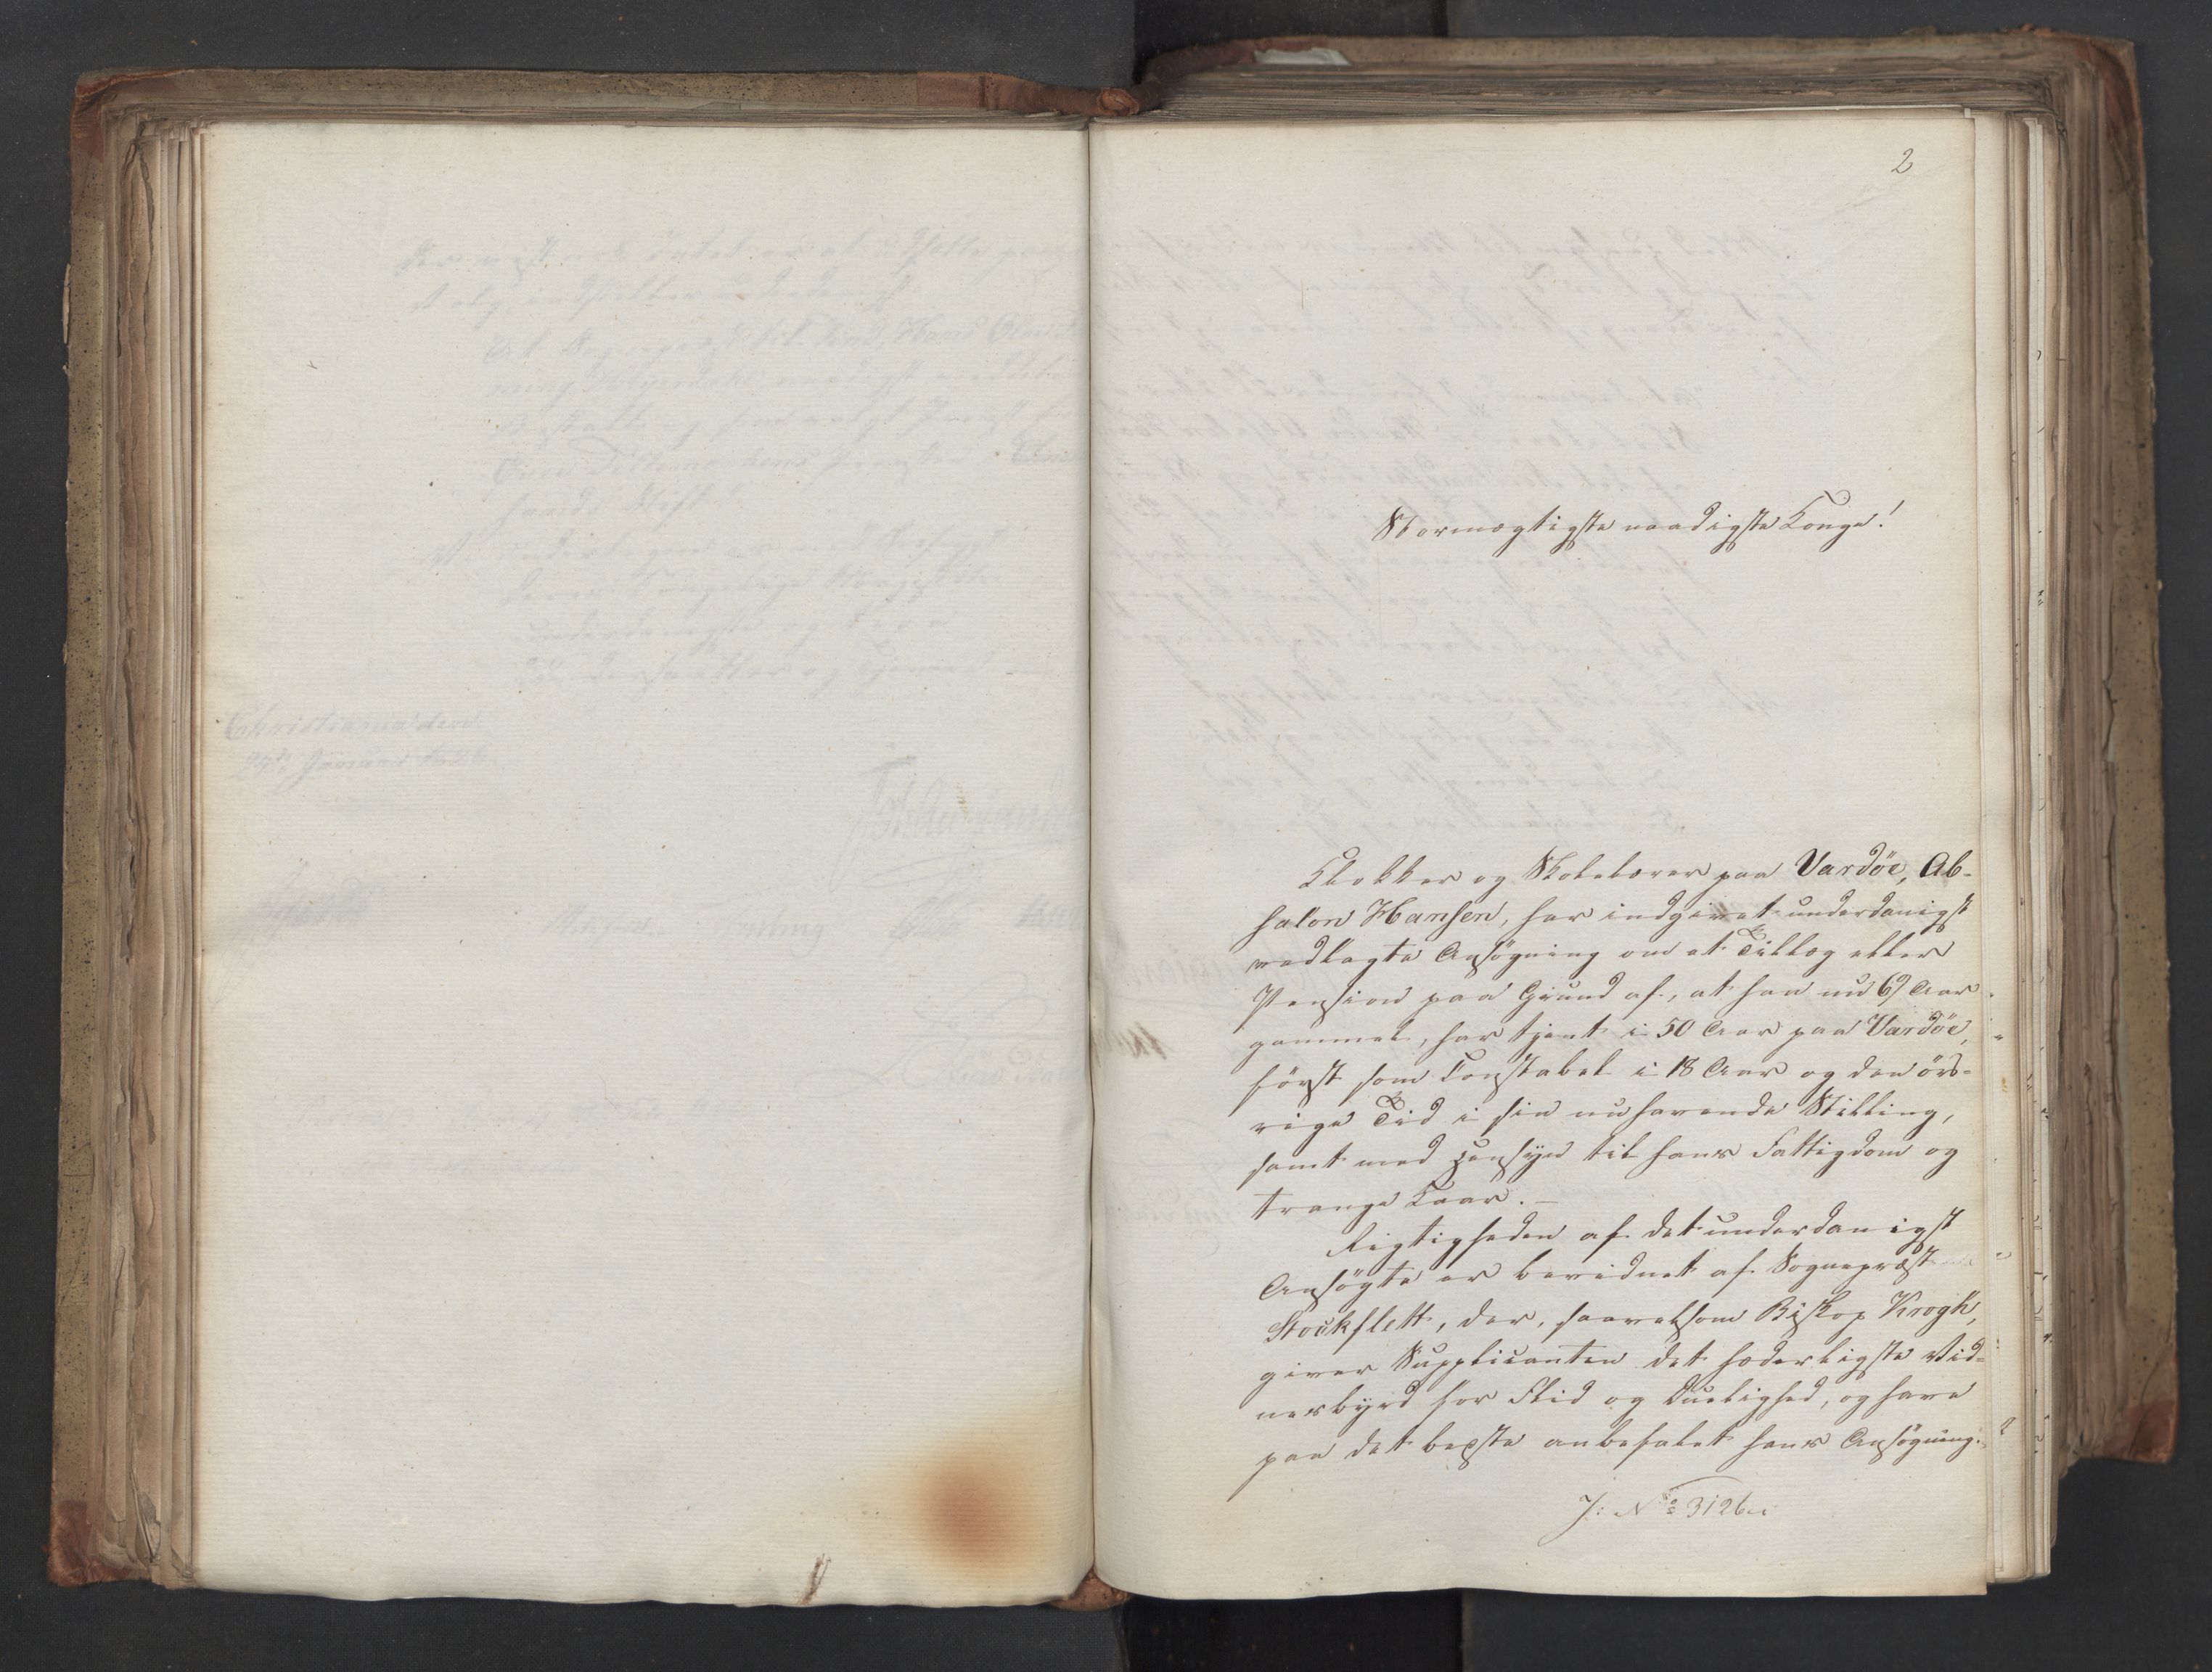 2
Stormægtigste naadigste Konge!
Klokker og Skolelærer paa Vardöe, Ab-
salon Hansen, har indgivet underdanigst
vedlagte Ansögning om et Tillæg eller
Pension paa Grund af, at han nu 69 Aar
gammel, har tjent i 50 Aar paa Vardöe,
först som Constabel i 18 Aar og den öv-
rige Tid i sin nuhavende Stilling,
samt med Hensyn til hans Fattigdom og
trange Kaar. —
Rigtigheden af det underdanigst
Ansögte er bevidnet af Sognepræst
Stockflett, der, saavelsom Biskop Krogh,
giver Supplicanten det hæderligste Vid-
nesbyrd for Flid og Duelighed, og have
paa det bedste anbefalet hans Ansögning.
J: No 3126